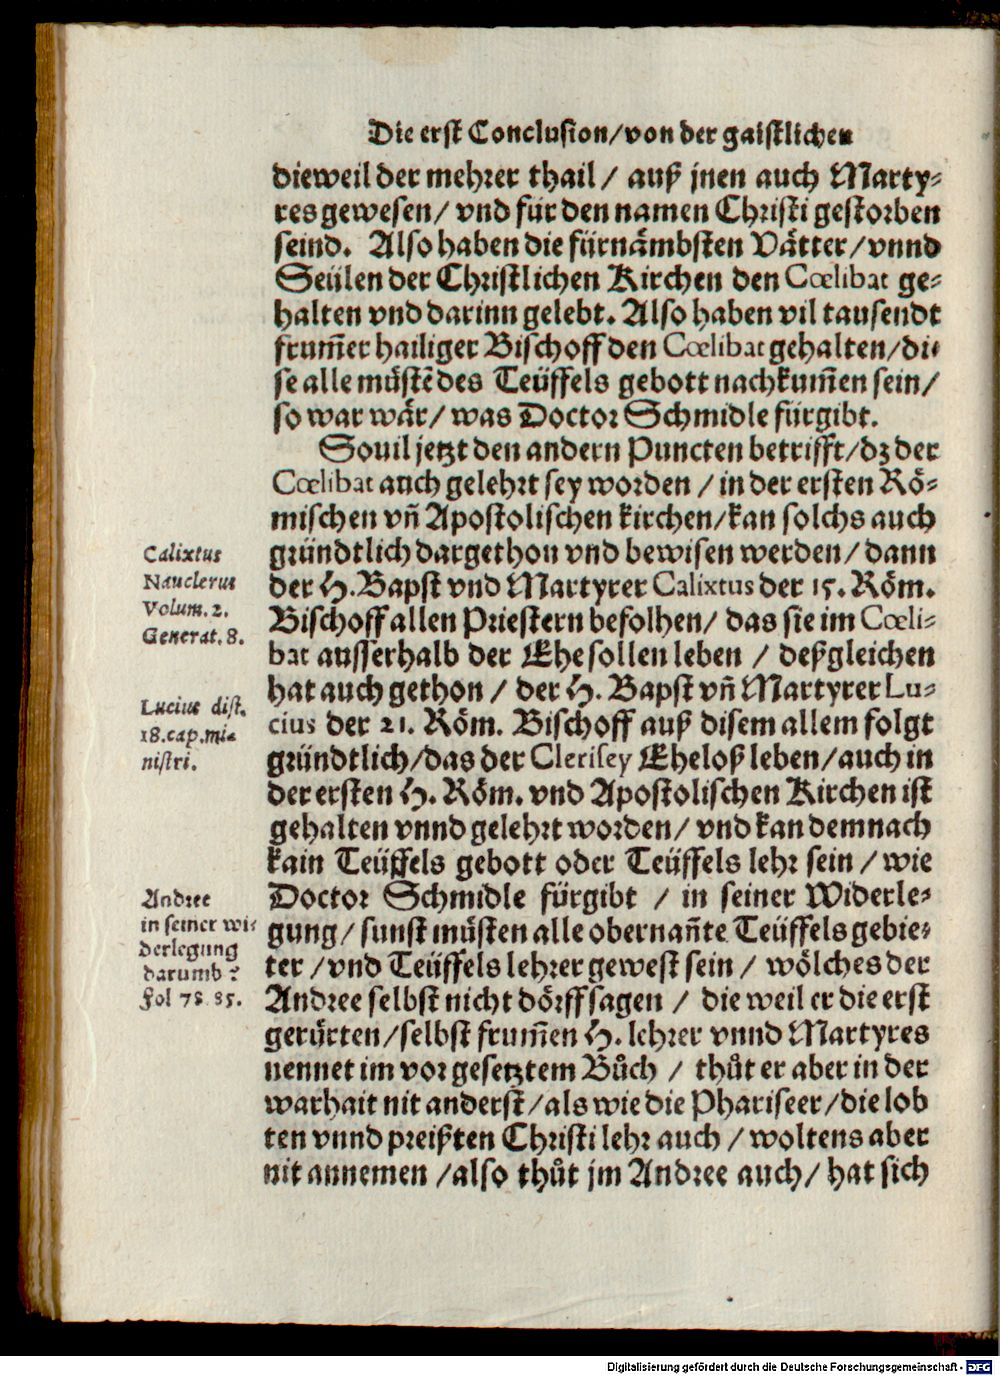 Die erst Conclusion/von der gaistlichen
dieweil der mehrer thail / auß jnen auch Marty⸗
res gewesen/ vnd für den namen Christi gestorben
seind. Also haben die fürnämbsten Vätter/vnnd
Seülen der Christlichen Kirchen den Cœlibat ge⸗
halten vnd darinn gelebt. Also haben vil tausendt
frum̃er hailiger Bischoff den Cœlibat gehalten/di⸗
se alle müstẽ des Teüffels gebott nachkum̃en sein/
so war wär/ was Doctor Schmidle fürgibt.
Souil jetzt den andern Puncten betrifft/dz der
Cœlibat auch gelehrt sey worden / in der ersten Rö⸗
mischen vñ Apostolischen kirchen/kan solchs auch
Calixtus
Nauclerus
Volum. 2.
Generat. 8.
gründtlich dargethon vnd bewisen werden/ dann
der H. Bapst vnd Martyrer Calixtus der 15. Röm.
Bischoff allen Priestern befolhen/ das sie im Cœli⸗
bat ausserhalb der Ehe sollen leben / deßgleichen
hat auch gethon / der H. Bapst vñ Martyrer Lu⸗
Lucius dist.
18. cap. mi⸗
nistri.
cius der 21. Röm. Bischoff auß disem allem folgt
gründtlich/das der Clerisey Eheloß leben/auch in
der ersten H. Röm. vnd Apostolischen Kirchen ist
gehalten vnnd gelehrt worden/ vnd kan demnach
kain Teüffels gebott oder Teüffels lehr sein / wie
Andree
in seiner wi⸗
derlegung
darumb ?
Fol 78. 85.
Doctor Schmidle fürgibt / in seiner Widerle⸗
gung/ sunst müsten alle obernañte Teüffels gebie⸗
ter /vnd Teüffels lehrer gewest sein / wölches der
Andree selbst nicht dörff sagen / die weil er die erst
gerürten/selbst frum̃en H. lehrer vnnd Martyres
nennet im vor gesetztem Bůch / thůt er aber in der
warhait nit anderst/als wie die Phariseer/die lob
ten vnnd preißten Christi lehr auch / woltens aber
nit annemen /also thůt jm Andree auch/ hat sich
Digitalisierung gefördert durch die Deutsche Forschungsgemeinschaft - DFG